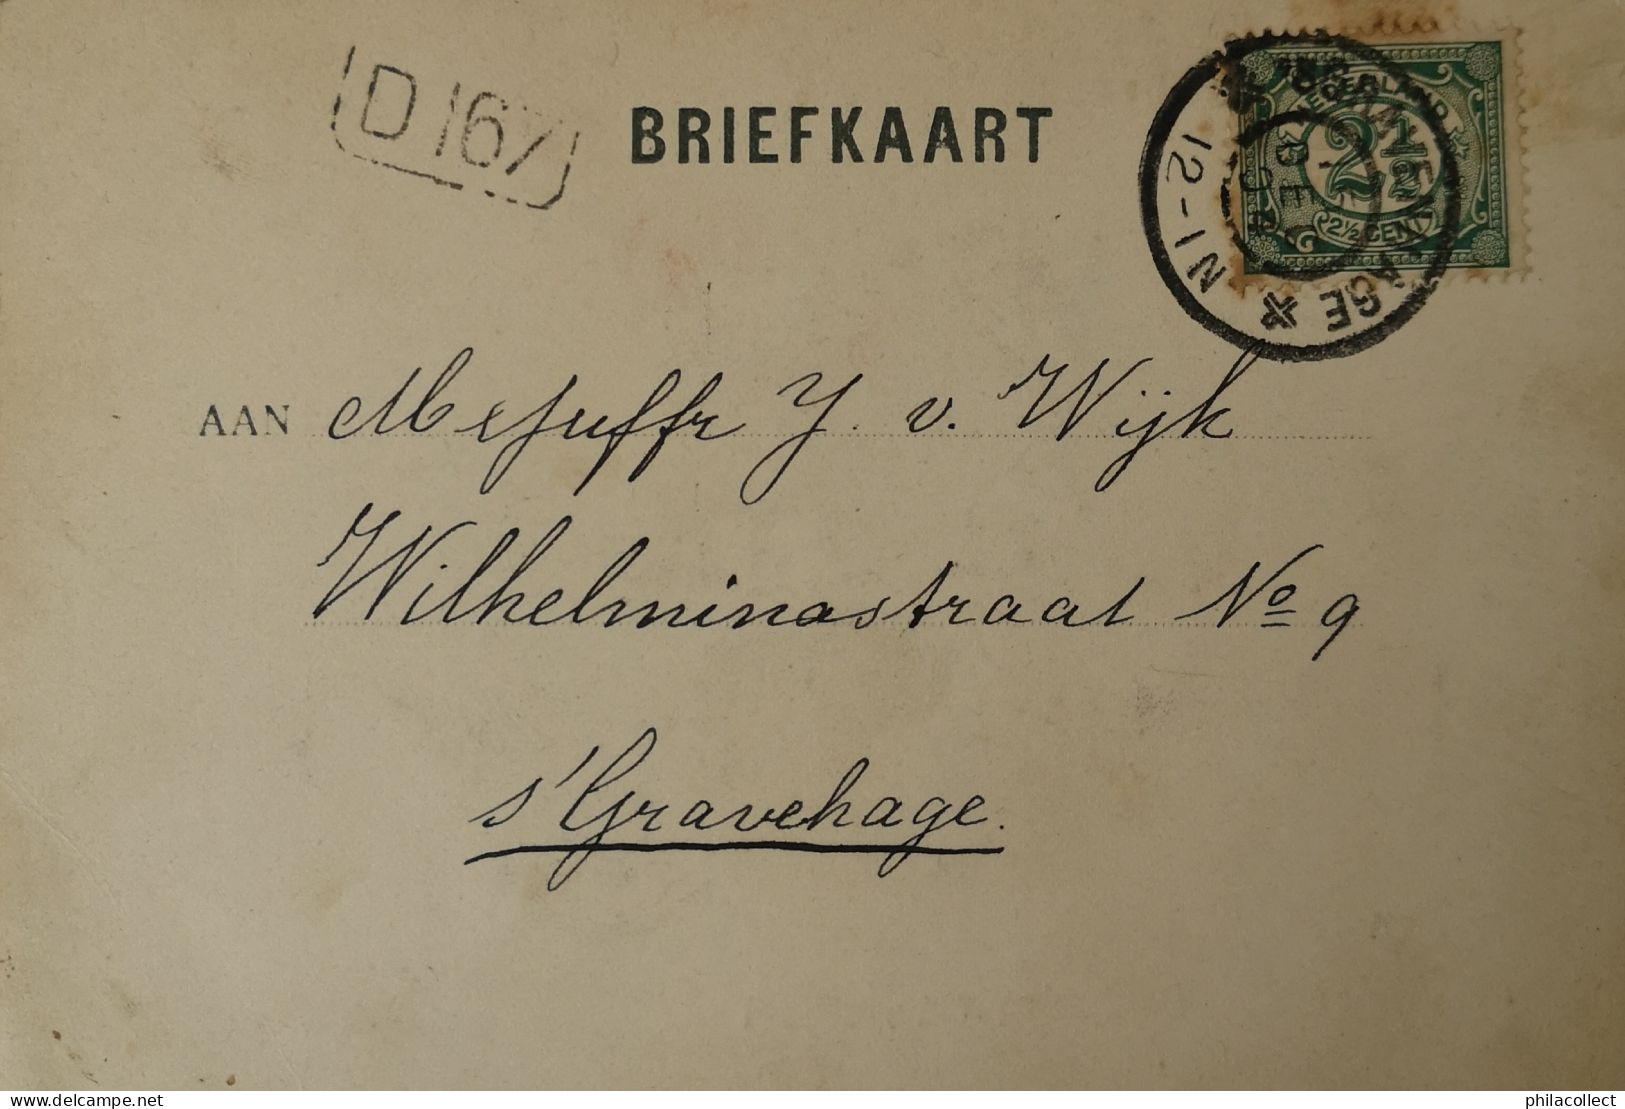 D 167
BRIEFKAART
NEDERLAND
2 1/2
2 1/2 CENT
'SGRAVENHAGE
12-1 N
DEC
AAN Mejuffr J. v. Wijk
Wilhelminastraat No 9
s'Gravehage.
delcampe.net
philacollect